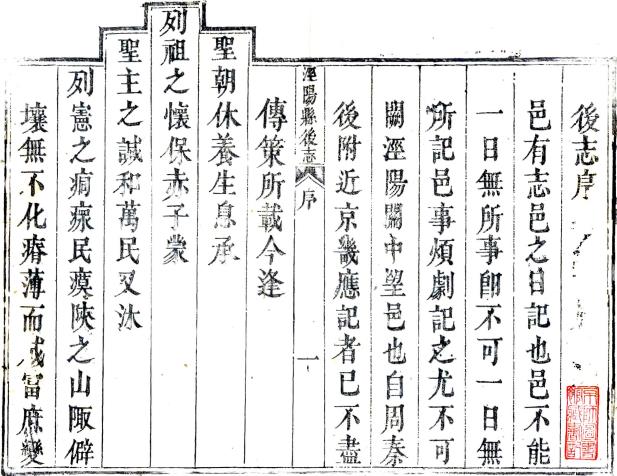 後志序
邑有志邑之日記也邑不能
一日無所事卽不可一日無
所記邑事煩劇記之尤不可
闕涇陽關中望邑也自周秦
後附近京畿應記者已不盡
涇陽縣後志 序 一
傳策所載今逢
聖朝休養生息承
列祖之懷保赤子蒙
聖主之諴和萬民又沐
列憲之痌瘝民瘼陝之山陬僻
壤無不化瘠薄而咸富庶變